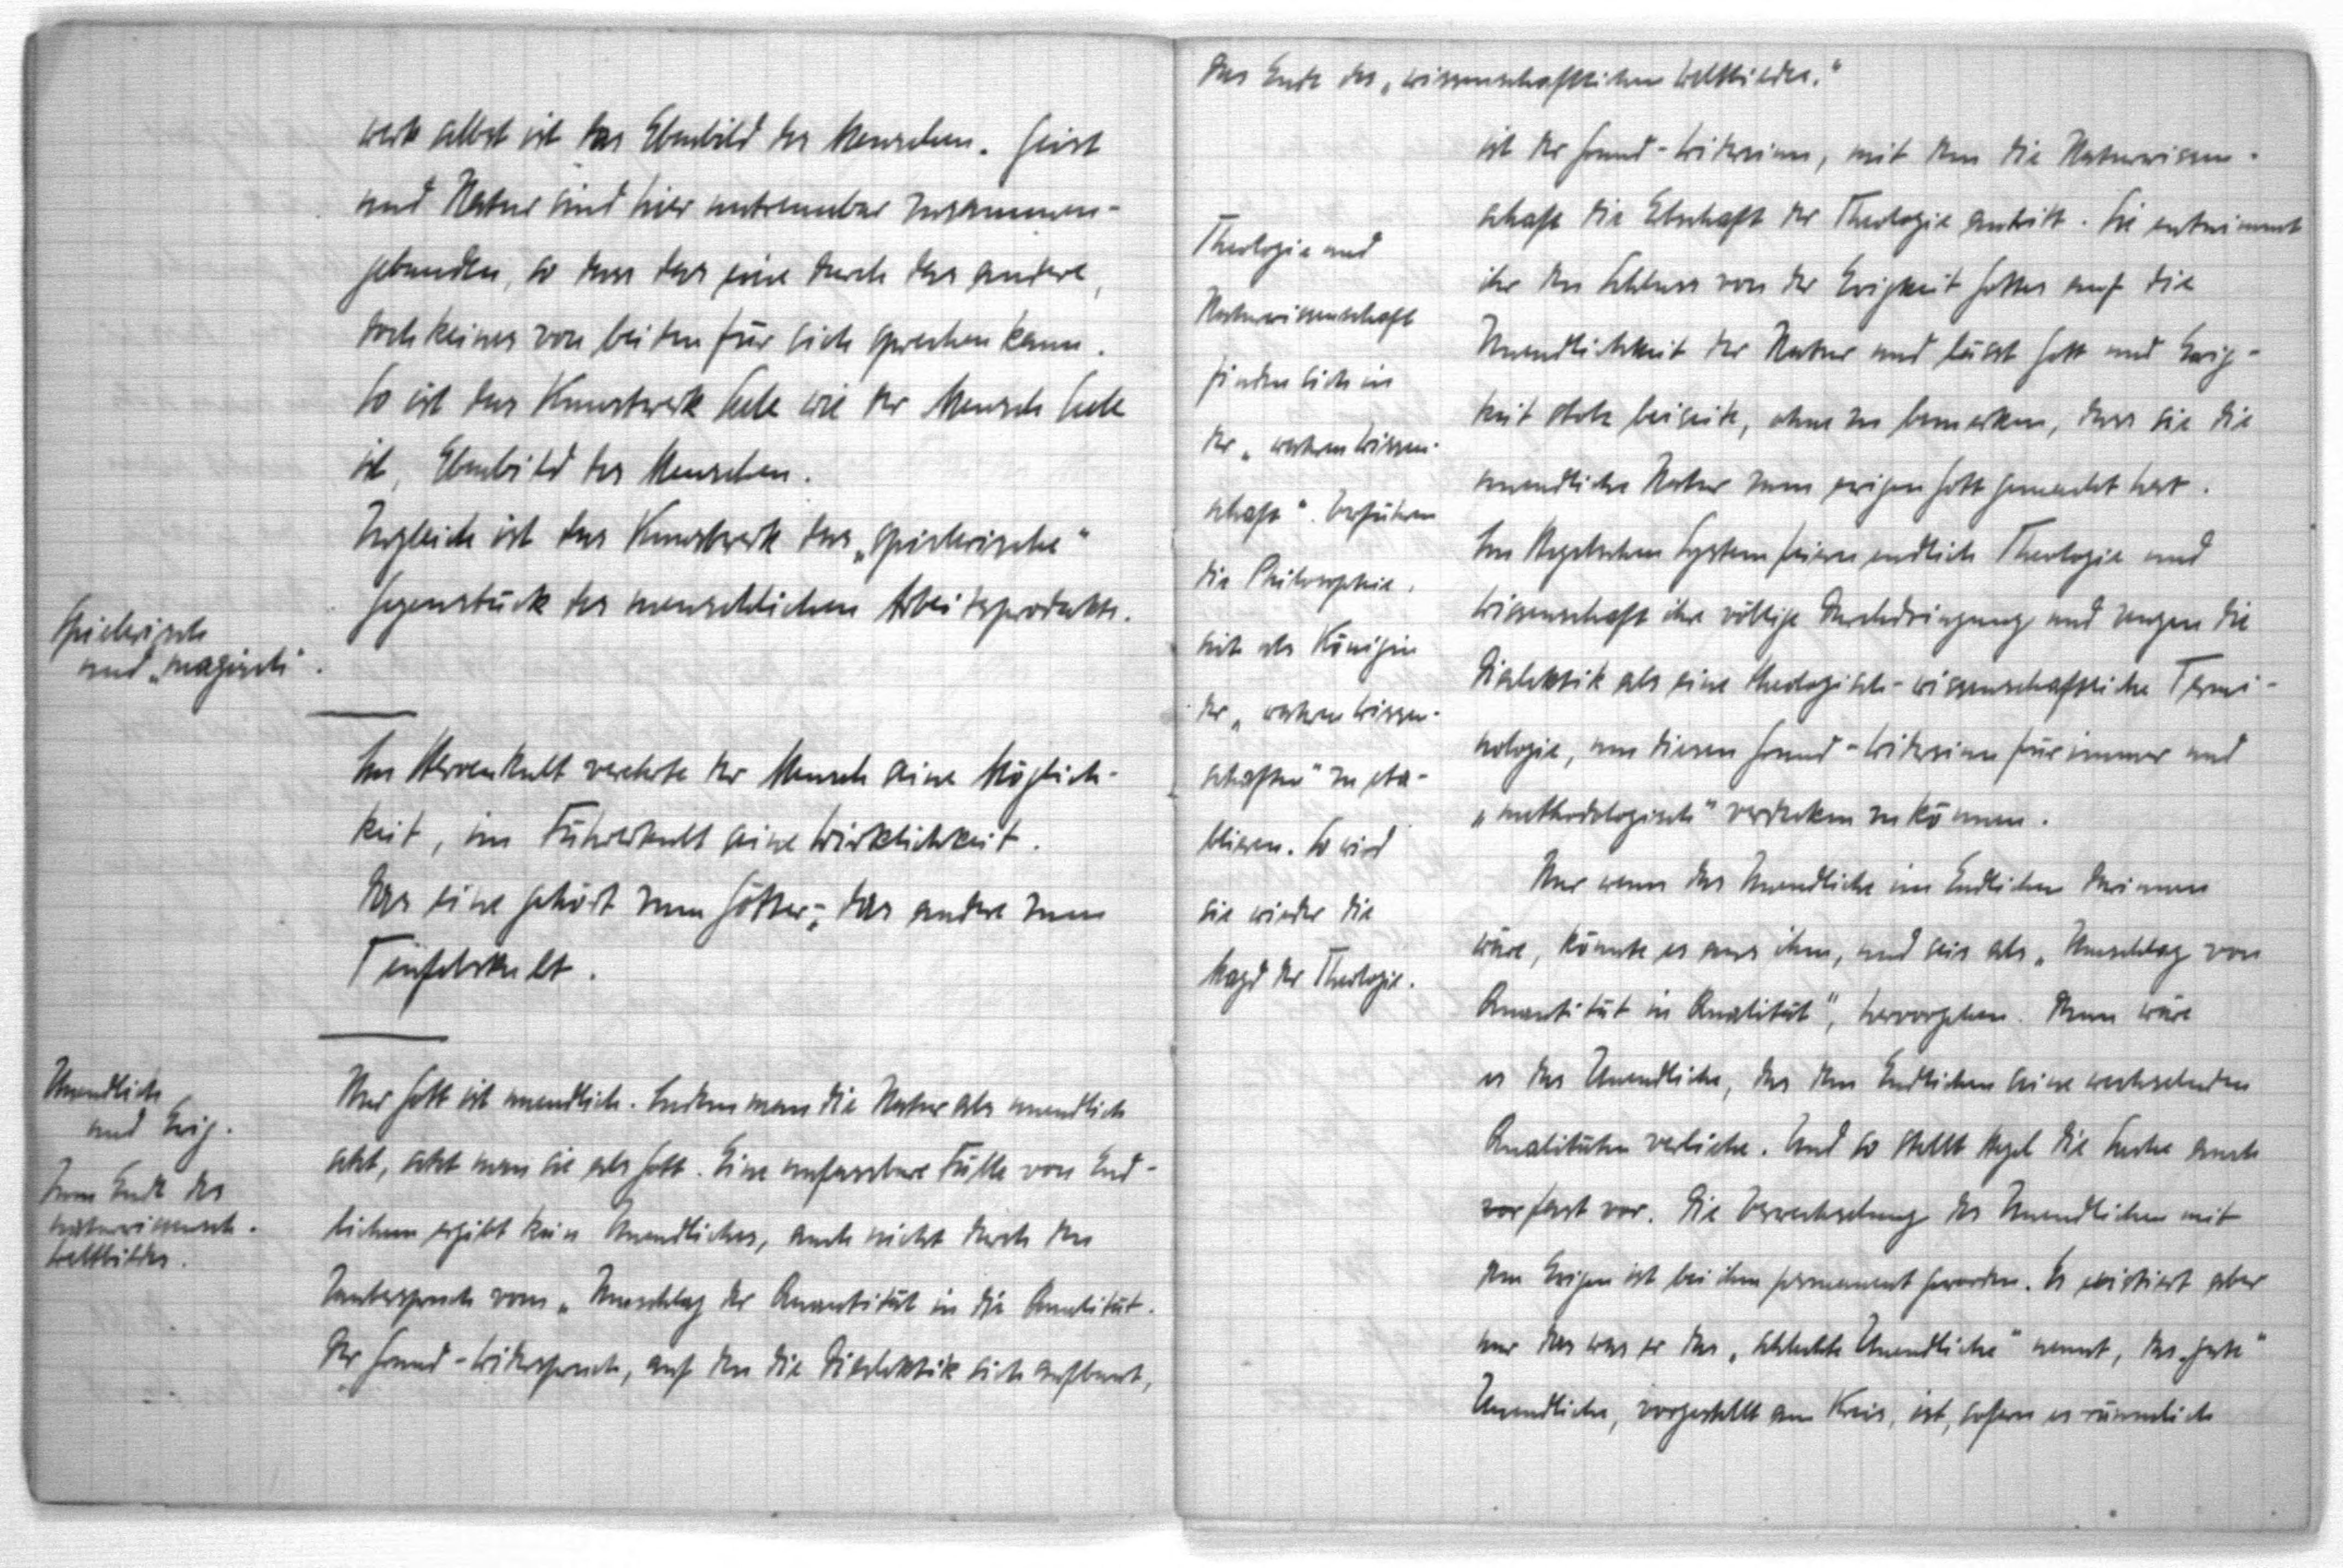 werk selbst ist das Ebenbild des Menschen. Geist
und Natur sind hier untrennbar zusammen-
gebunden, so dass das eine durch das andere,
doch keines von beiden für sich sprechen kann.
So ist das Kunstwerk Seele wie der Mensch Seele
ist, Ebenbild des Menschen.
Zugleich ist das Kunstwerk das „spielerische"
Gegenstück des menschlichen Arbeitsprodukts.
Spielerisch
und „magisch".
Im Heroenkult verehrte der Mensch seine Möglich-
keit, im Führerkult seine Wirklichkeit.
Das eine gehört zum Götter-, das andere zum
Teufelskult.
Unendlich
und Ewig.
Zum Ende des
naturwissensch.
Weltbildes.
Nur Gott ist unendlich. Indem man die Natur als unendlich
setzt, setzt man sie als Gott. Eine unfassbare Fülle von End-
lichem ergibt kein Unendliches, auch nicht durch den
Zauberspruch vom „Umschlag der Quantität in die Qualität.
Der Grund-Widerspruch, auf den die Dialektik sich aufbaut,
Das Ende des „wissenschaftlichen Weltbildes."
Theologie und
Naturwissenschaft
finden sich in
der „wahren Wissen-
schaft". Verführen
die Philosophie,
sich als Königin
der „wahren Wissen-
schaften" zu eta-
blieren. So wird
sie wieder die
Magd der Theologie.
ist der Grund-Widersinn, mit dem die Naturwissen-
schaft die Erbschaft der Theologie antritt. Sie entnimmt
ihr den Schluss von der Ewigkeit Gottes auf die
Unendlichkeit der Natur und lässt Gott und Ewig-
keit stolz beiseite, ohne zu bemerken, dass sie die
unendliche Natur zum ewigen Gott gemacht hat.
Im Hegelschen System feiern endlich Theologie und
Wissenschaft ihre völlige Durchdringung und zeugen die
Dialektik als eine theologisch-wissenschaftliche Termi-
nologie, um diesen Grund-Widersinn für immer und
„methodologisch" verdecken zu können.
Nur wenn das Unendliche im Endlichen darinnen
wäre, könnte es aus ihm, und seis als „Umschlag von
Quantität in Qualität", hervorgehen. Dann wäre
es das Unendliche, das dem Endlichen seine wechselnden
Qualitäten verliehe. Und so stellt Hegel die Sache auch
fast vor. Die Verwechselung des Unendlichen mit
dem Ewigen ist bei ihm permanent geworden. Es existiert aber
nur das was er das „schlechte Unendliche" nennt, das „gute"
Unendliche, vorgestellt am Kreis, ist, sofern es räumlich